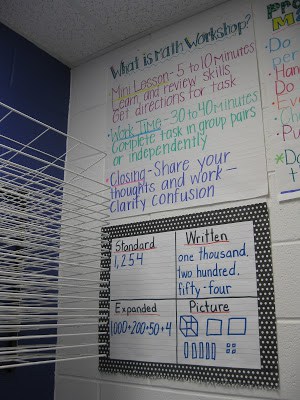 What is Math Workshop?
• Mini Lesson - 5 to 10 Minutes
Learn and review skills
Get directions for task
• Work Time - 30 to 40 minutes
Complete task in group pairs
or independently
• Closing - Share your
thoughts and work -
clarify confusion
Standard
1,254
Written
one thousand,
two hundred,
fifty-four
Expanded
1000+200+50+4
Picture